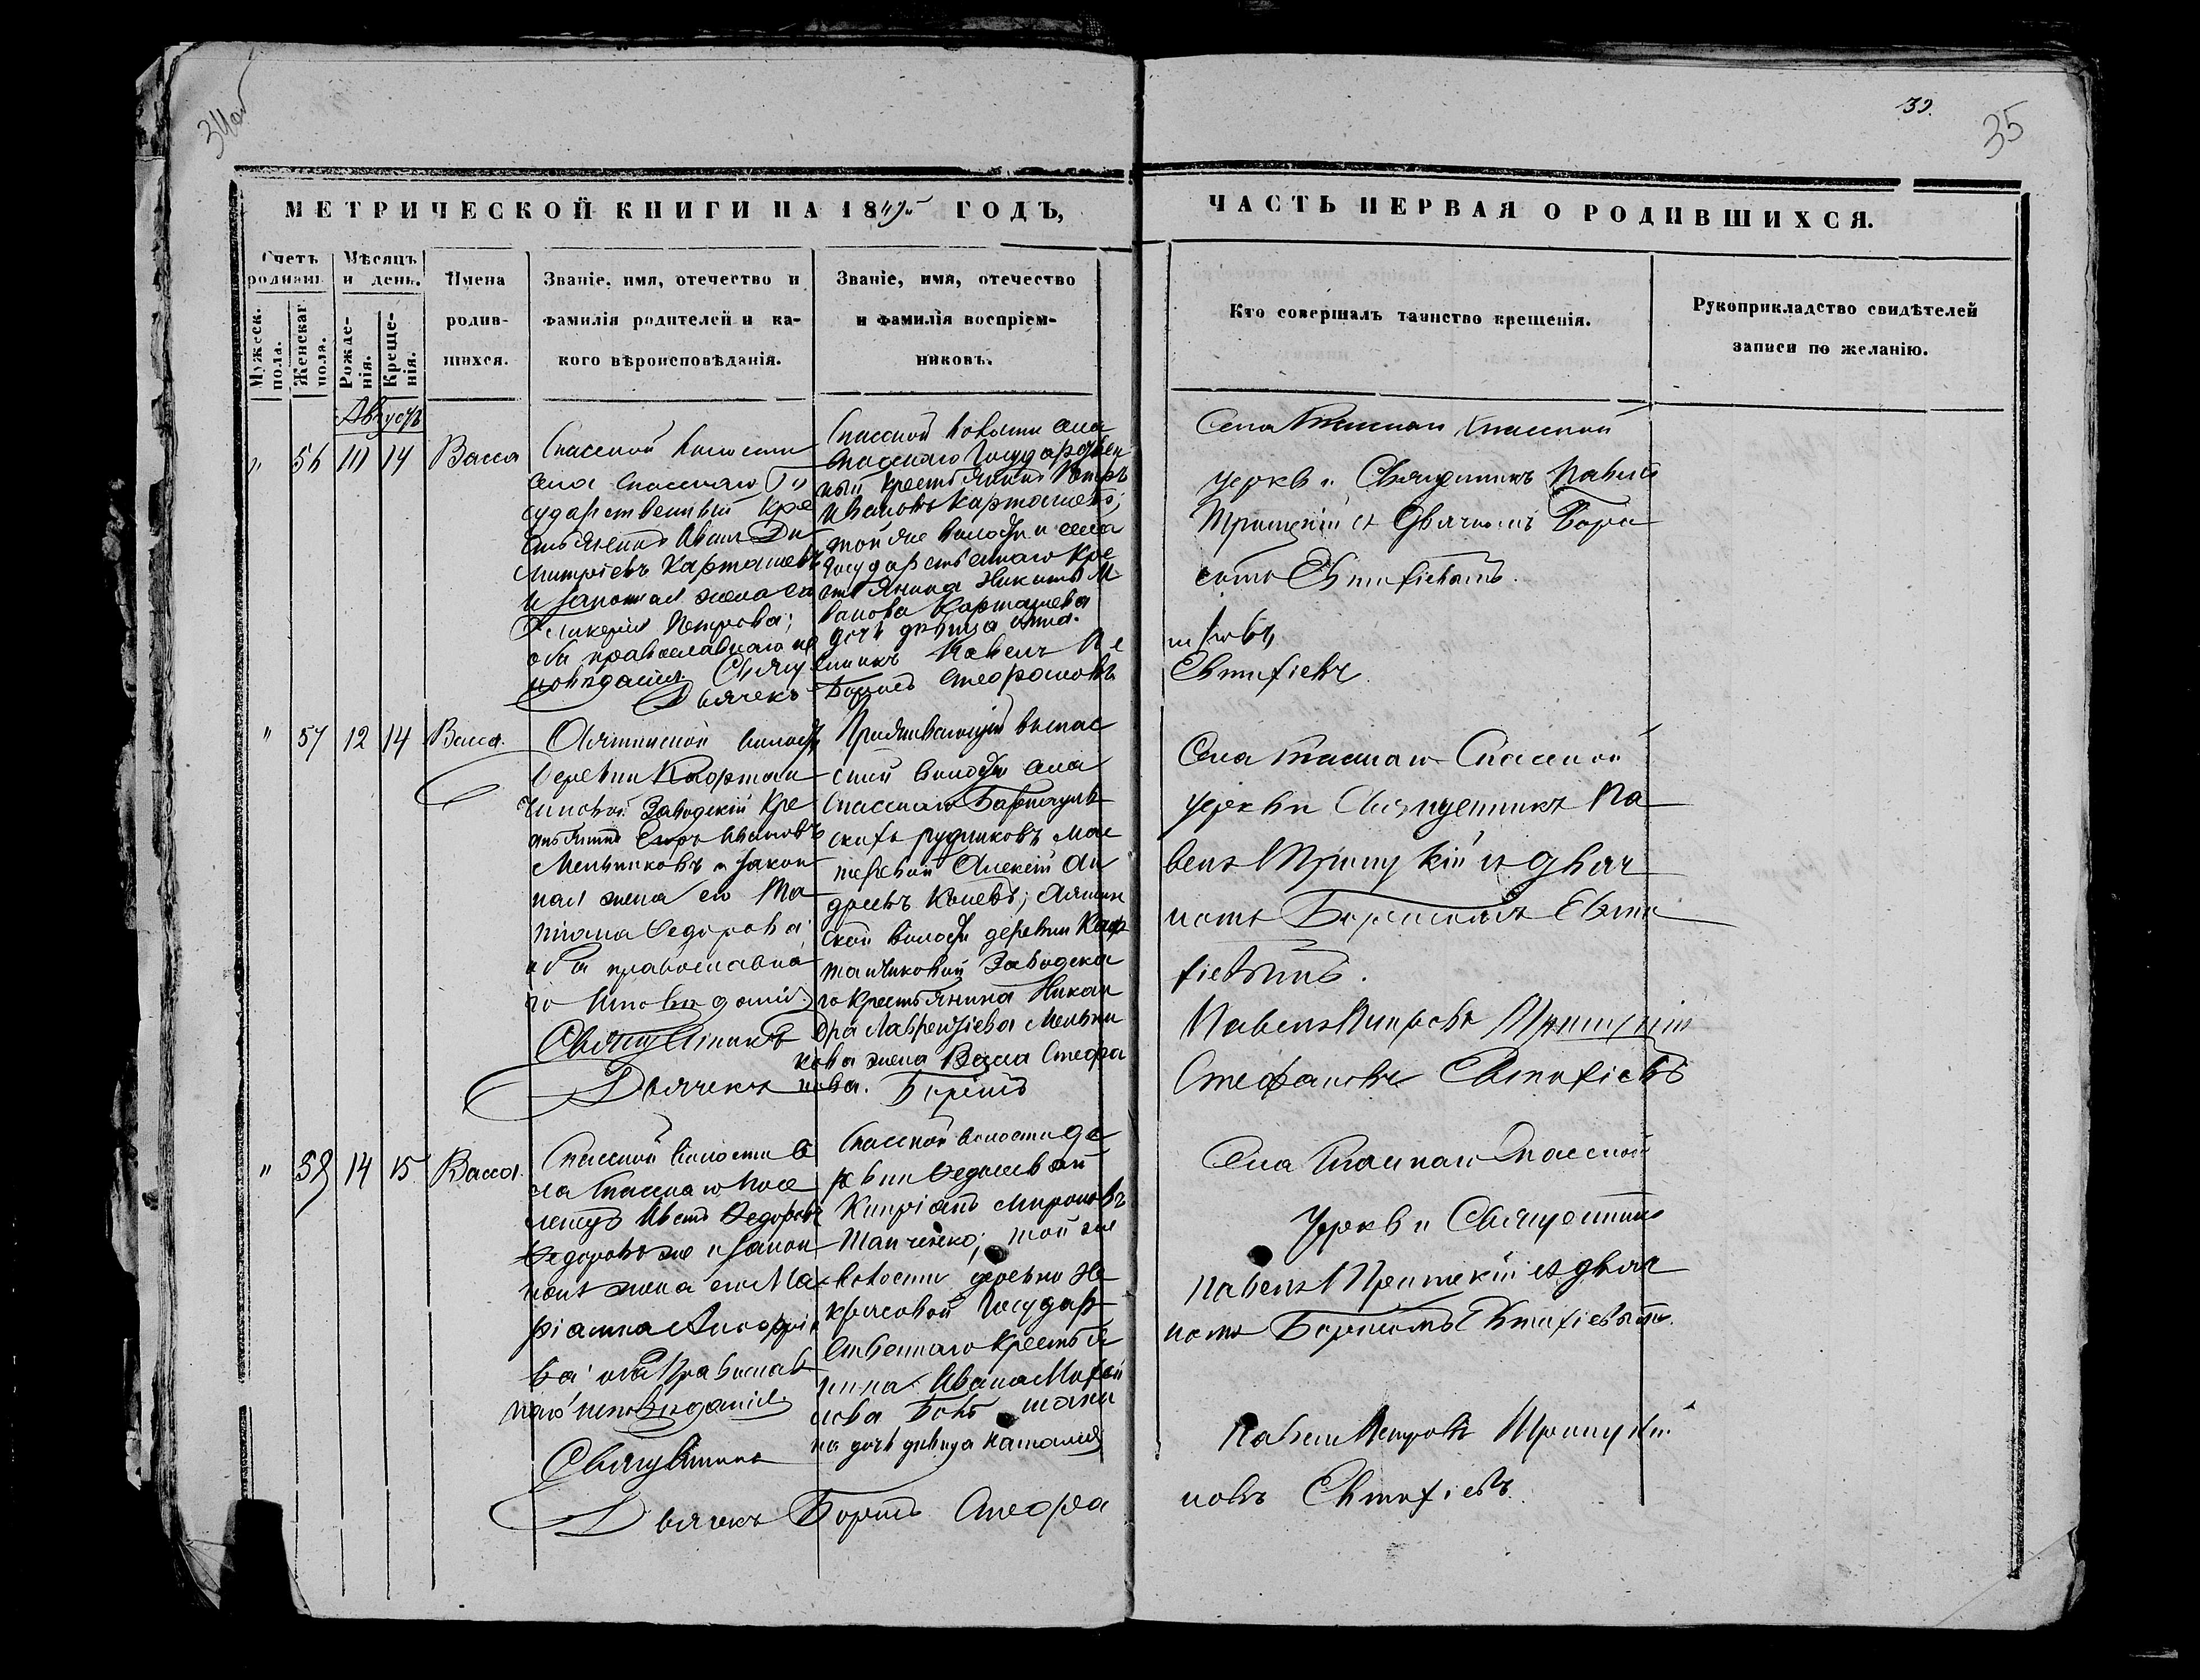 35
МЕТРИЧЕСКОЙ КНИГИ НА 18 ГОДЪ,
ЧАСТЬ ПЕРВАЯ О РОДИВШИХСЯ.
Счетъ
Мѣсяцъ и день.
Мужеск. пола.
Женскаг пола.
Рожде-
нія.
Креще-
нія.
Имена
родив-
шихся.
Званіе, имя, отечество и
фамилія родителей и ка-
кого вѣроисповѣданія.
Званіе, имя, отечество
и фамилія воспріем-
никовъ.
Кто совершалъ таинство крещенія.
Рукоприкладство свидѣтелей
записи по желанію.
Августъ
14
Васса
Спасской волости
села Спасскаго Го
сударственный Кре
стьянинъ Иванъ Ди
митріевъ Карташевъ
и законная жена его
Гликерія Петрова;
оба православнаго ис
повѣданія
Спасской волости села
Спасскаго Государствен
ный крестьянинъ Петръ
Ивановъ Карташевъ;
той же волости и села
Государственнаго Кре
стьянина Никиты И
ванова Карташева
дочь дѣвица Анна.
Священникъ Павелъ Пе
Дьячекъ Борисъ Стефановъ
Села Спасскаго Спасской
церкви Священникъ Павелъ
съ Дьячкомъ Бори
сомъ Евтифіевымъ.
Евтифіевъ
" 57 12 14 Васса.
волости
деревни Кафтан
чиковой Заводскій Кре
стьянинъ Егоръ Ивановъ
Мельниковъ и закон
ная жена его Та
тіана Ѳедорова
оба православна
го исповѣданія.
Священникъ
Дьячекъ
Проживающій въ Спас
ской волости села
Спасскаго Барнауль
скихъ рудниковъ мас
теровой Алексій Ан
дреевъ
волости деревни Каф
танчиковой Заводска
го Крестьянина Никан
дра Лаврентіева Мельни
кова жена Васса Стефа
нова. Борисъ
Села Спасскаго Спасской
церкви Священникъ Па
велъ съ дьяч
комъ Борисомъ Евти
фіевымъ.
Павелъ Петровъ
Стефановъ Евтифіевъ
" 58 14 15 Васса
Спасской волости Се
ла Спасскаго Посе
ленецъ Иванъ Ѳедоровъ
Ѳедоровъ же и закон
ная жена его Ма
ріанна
ва оба Православ
наго исповѣданія
Священникъ
Спасской волости де
ревни
Кипріанъ Мироновъ
той же
волости деревни Не
красовой Государ
ственнаго Крестья
нина Ивана
на дочь дѣвица Наталія
Дьячекъ Борисъ Стефа
Села Спасскаго Спасской
Церкви Священникъ
Павелъ съ дьяч
комъ Борисомъ Евтифіевымъ.
Павелъ Петровъ
новъ Евтифіевъ.